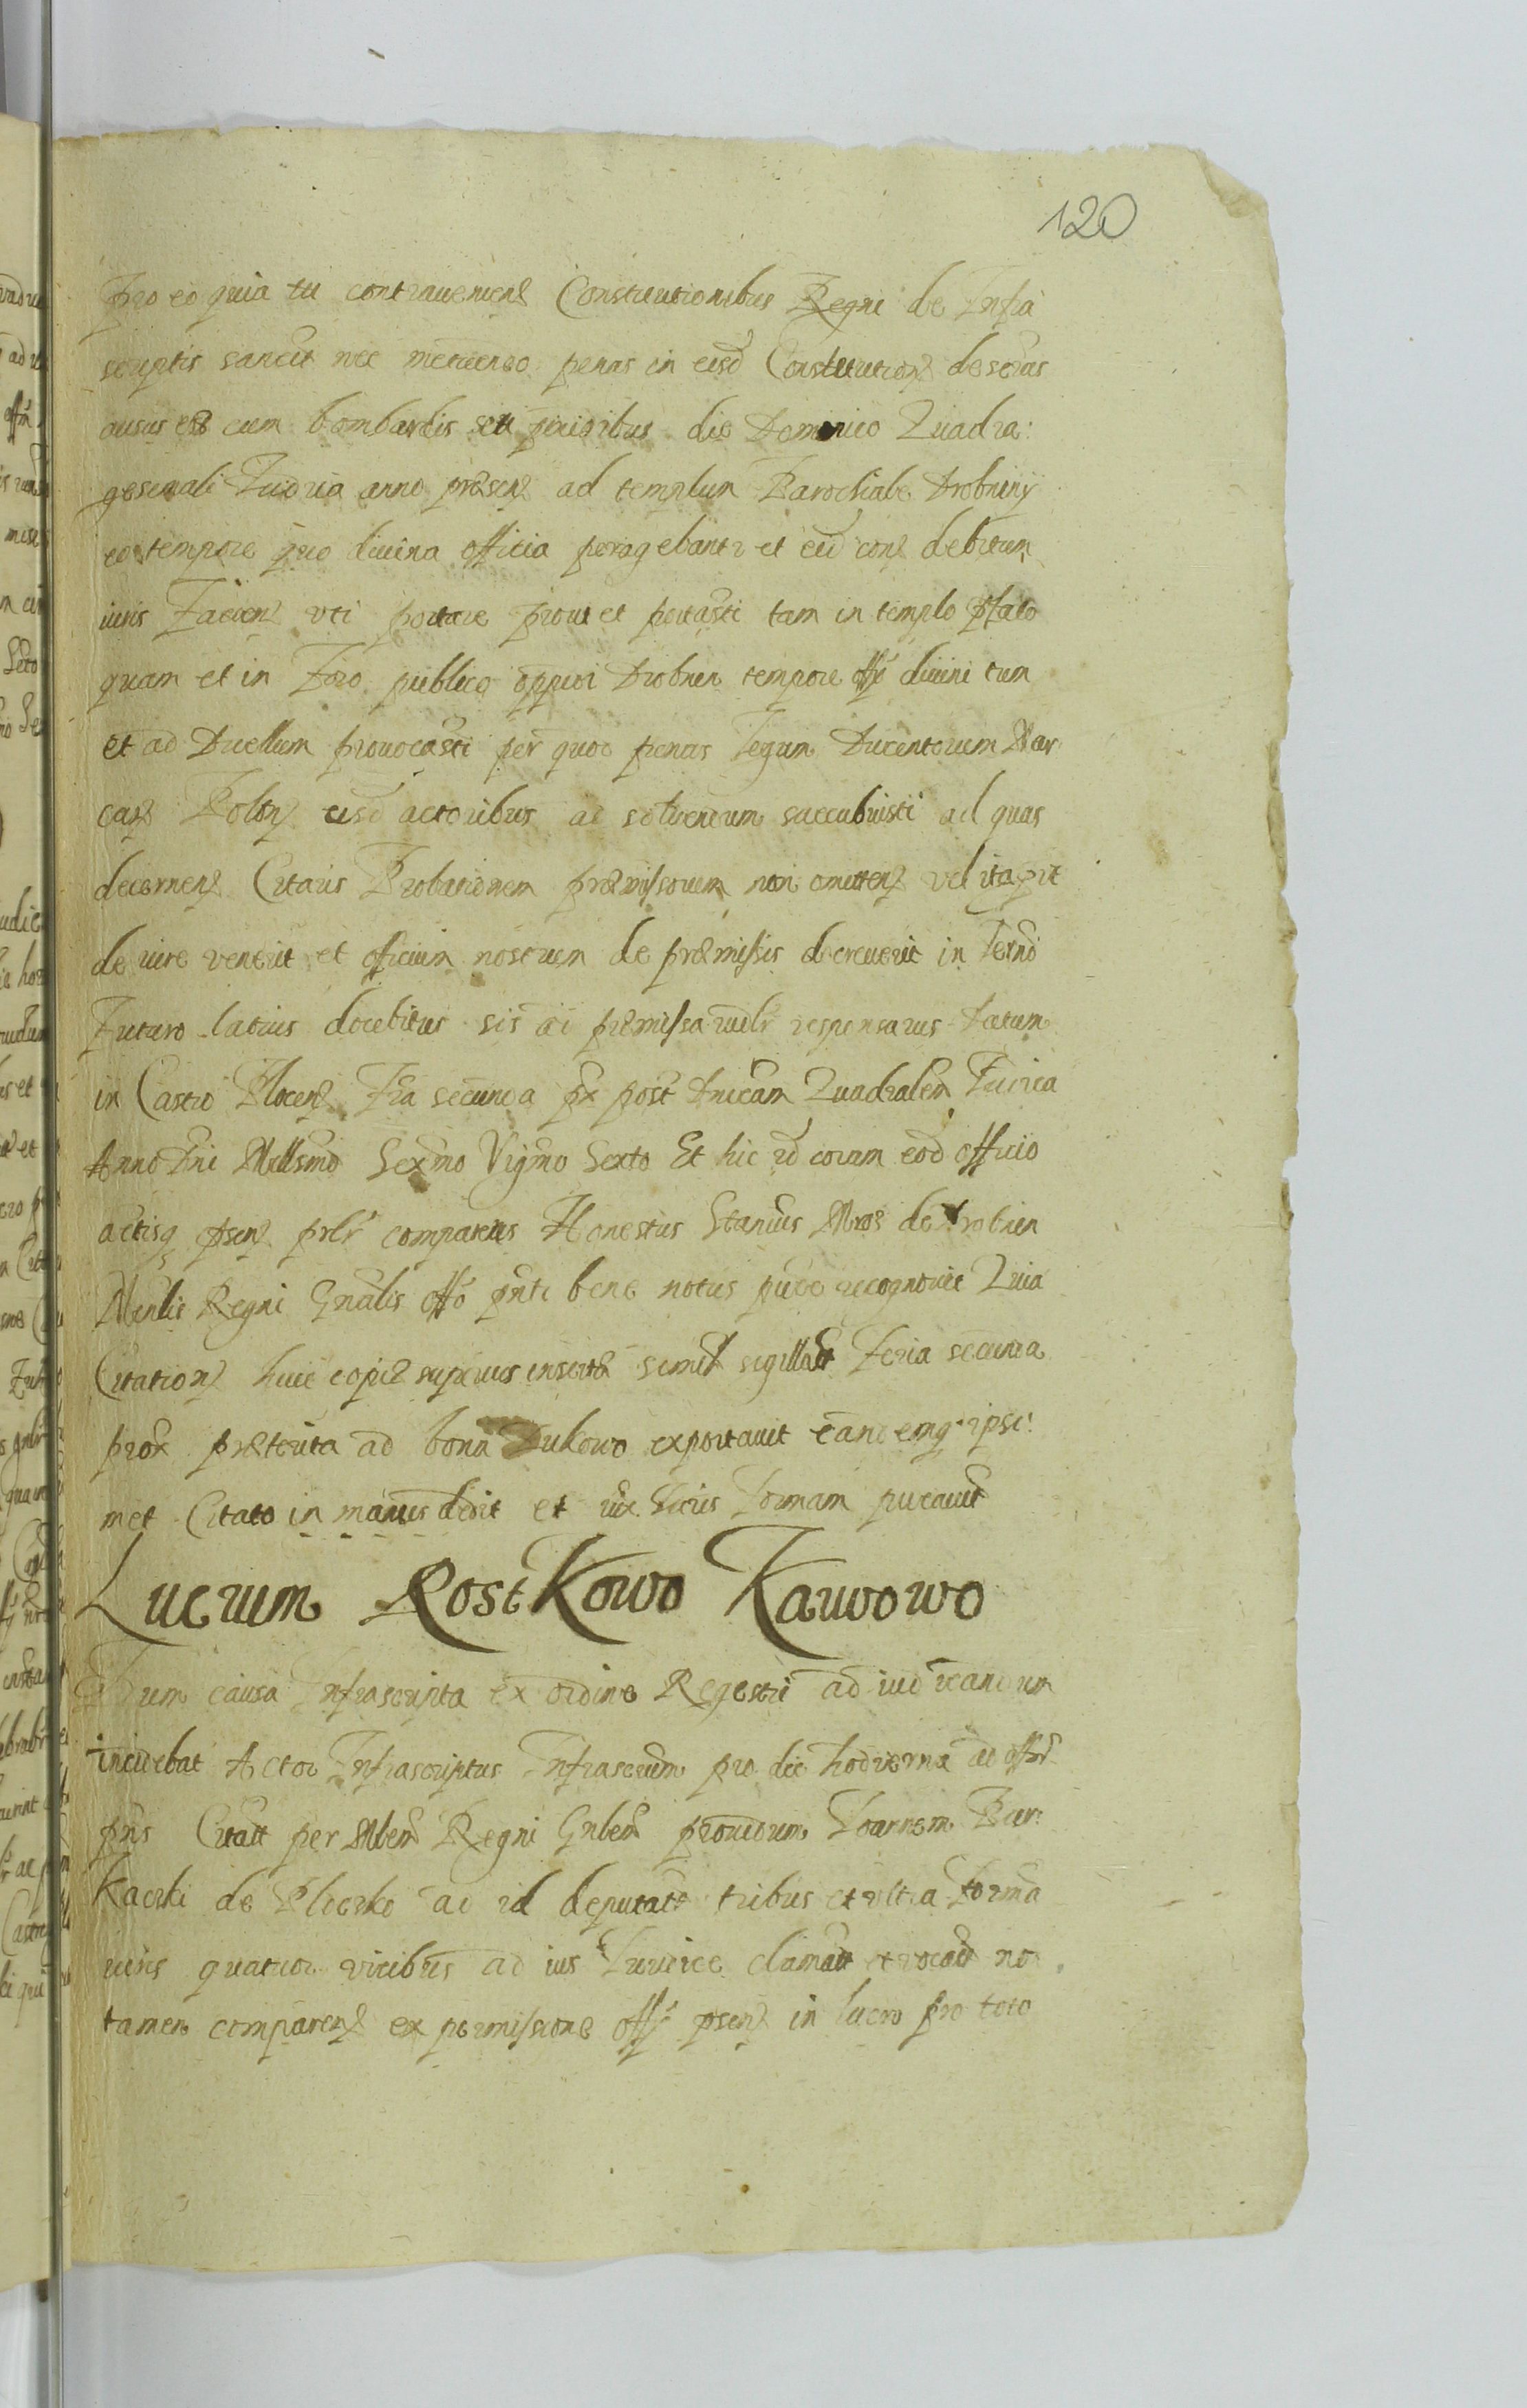 120
pro eo quia tu contraueniens Constitutionibus Regni de Infra
scriptis sancit nec metuendo penas in eisd Constitution descras
ausus es cum bombardis seu pixidibus die Dominico Quadra:
gesimali Inuia anno præsen ad templum Parochiale Drobniny
eo tempore quo diuina officia peragebantr et eisd con debitum
iuris facien vti portare prout et portasti tam in templo pfato
quam et in Foro publico oppidi Drobnen tempore offi diuini tum
et ad Duellum prouocasti per quod penas Legum Ducentorum Mar
cas Polon eisd actoribus ad soluendum succubuisti ad quas
decernens Citaris Probationem præmissorum non omitten vel ita prt
de iure venerit et officium nostrum de præmissis decreuerit in Termo
Futuro latius docebitur sis ad præmissa iudlr responsurus Datum
in Castro Plocen Fria secunda px post Dnicam Quadralem Inuica
Anno Dni Millsmo Sexmo Vigmo Sexto Et hic id coram eod officio
actisq psen prlr comparens Honestus Stanius Mros de Drobnen
Minlis Regni Gnalis offo pnti bene notus puce recognouit Quia
Citation huic copiæ superius insertæ simil sigillat Feria secunda
prox præterita ad bona Dukowo exportauit eandemq ipsi
met Citato in manus dedit et iux Iuris Formam pucauit
Lucrum Rostkowo Kawowo
Dum causa Infrascripta ex ordine Regestri ad iudicandum
incidebat Actor Infrascriptus Infrascrum pro die hodierna ad offm
pns Citatt per Mlem Regni Gnlem prouidum Ioannem Bar:
kacski de Ploczko ad id deputatt tribus et vltra Forma
iuris quatuor vicibus ad ius Iudice clamatt et vocatt no
tamen comparen ex permissione offi psen in lucro pro toto